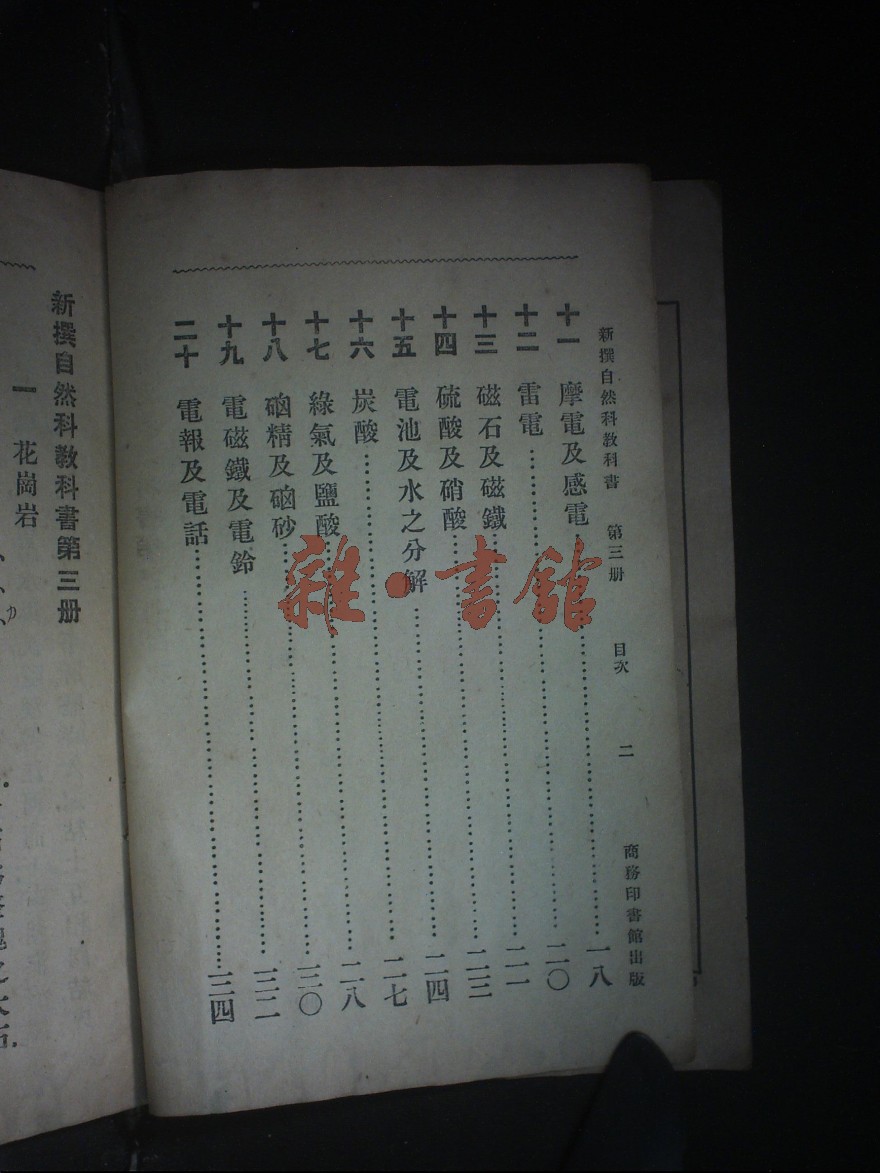 新撰自然科教科書 第三册 目次 二 商務印書館出版
十一 摩電及感電……一八
十二 雷電……二〇
十三 磁石及磁鐵……二一
十四 硫酸及硝酸……二三
十五 電池及水之分解……二四
十六 炭酸……二七
十七 綠氣及鹽酸……二八
十八 硇精及硇砂……三〇
十九 電磁鐵及電鈴……三二
二十 電報及電話……三四
新撰自然科教科書第三册
一 花崗岩
雜·書館